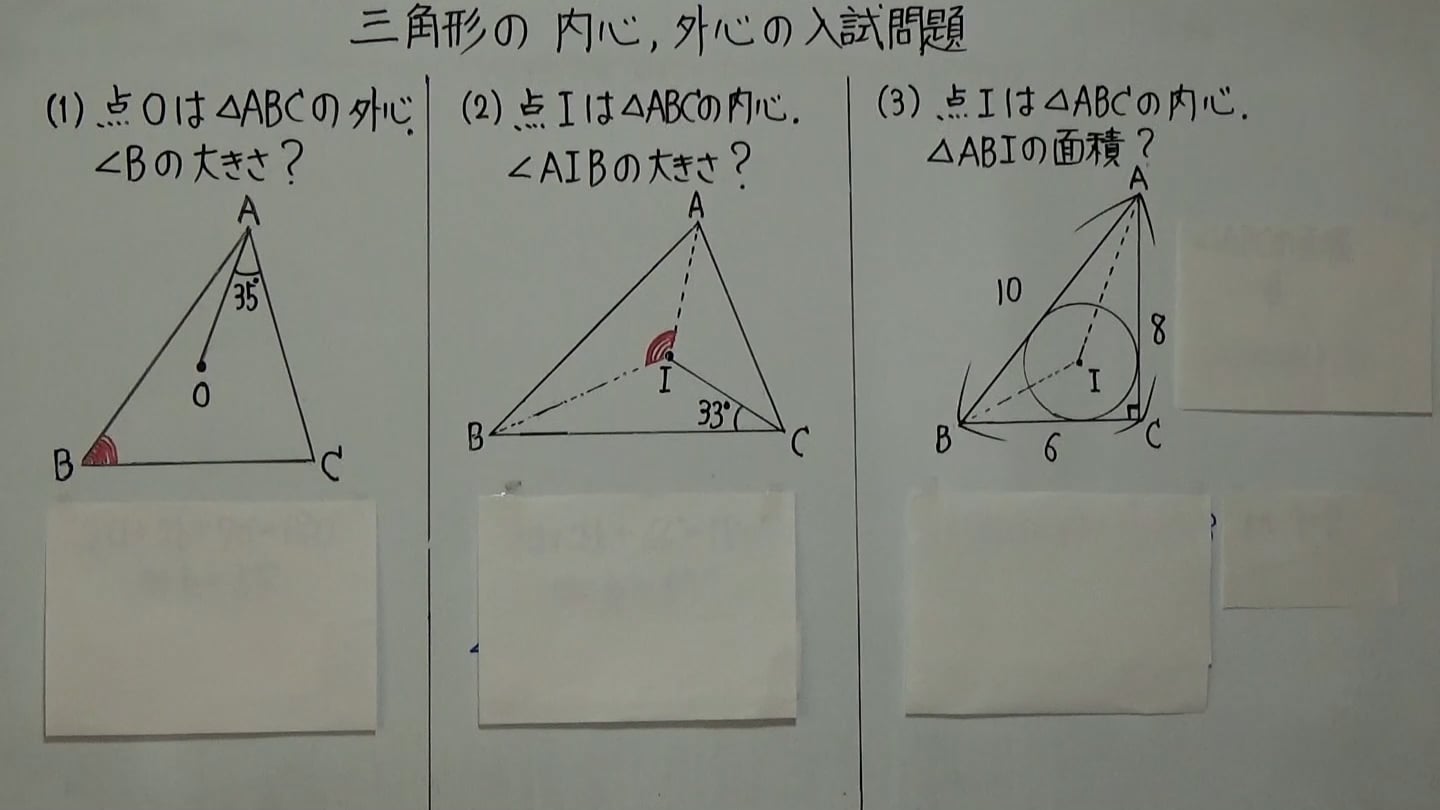 三角形の 内心, 外心の入試問題
(1) 点Oは△ABCの外心.
∠Bの大きさ?
A
35°
O
B
C
(2) 点Iは△ABCの内心.
∠AIBの大きさ?
A
I
33°
B
C
(3) 点Iは△ABCの内心.
△ABIの面積?
A
10
8
I
B
6
C